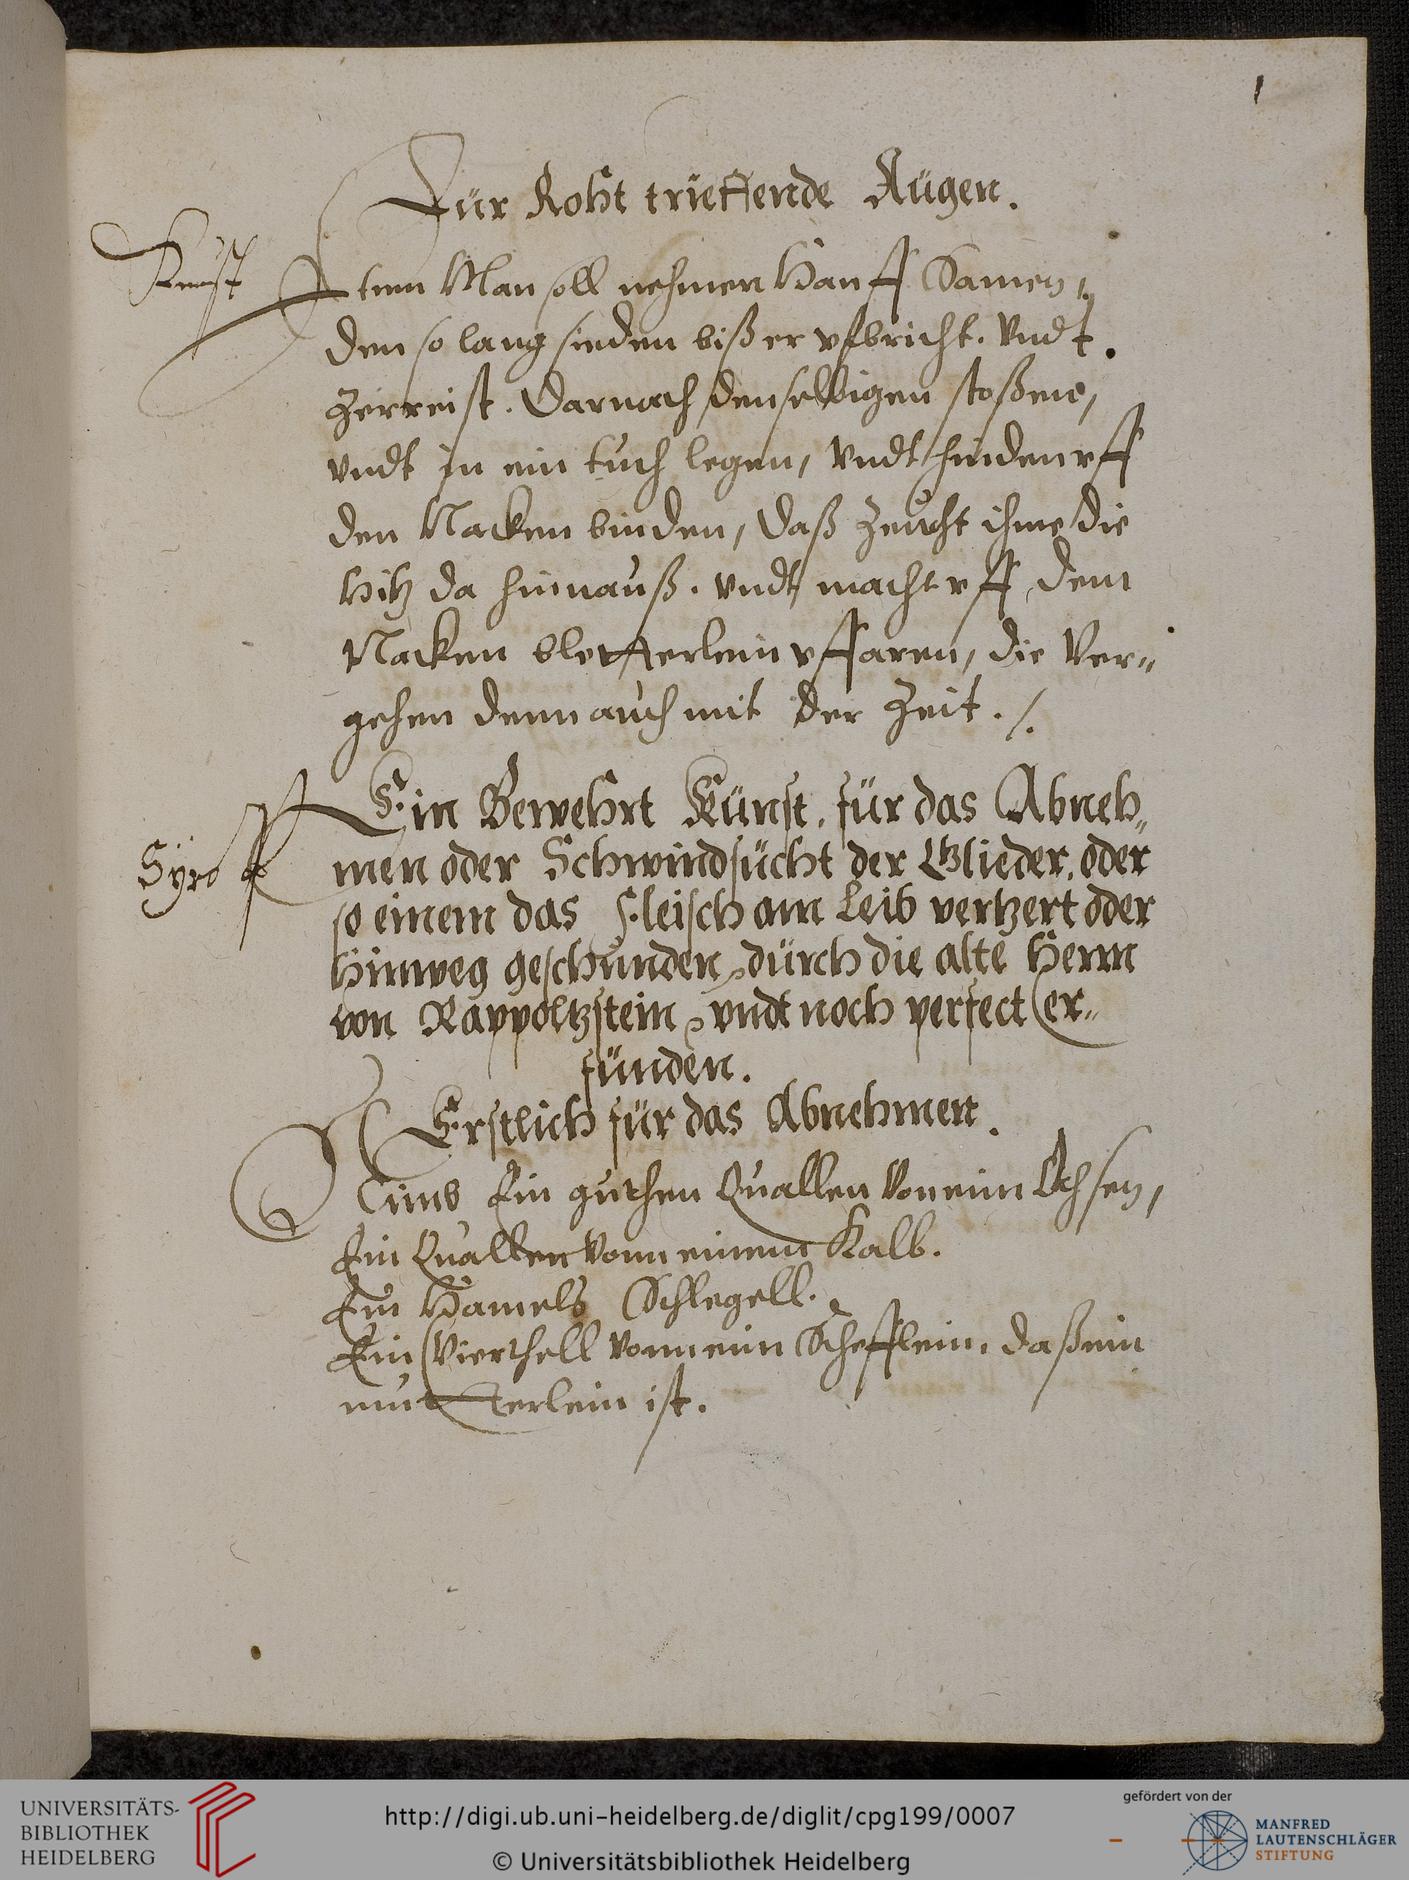 1
Für Roht trieffende Augen.
Kunst
Item Man soll nehmen Hanff Samen,
den so lang sieden biß er vfbricht. Vndt
Zerreist. Darnach denselbigen stoßenn,
vndt in ein tuch legen, Vndt hinden vff
den Nacken binden, daß Zeucht ihme die
Hitz da hinauß. vndt macht vff dem
Nacken bletterlein vffaren, die Ver„
gehen dann auch mit der Zeit ./.
Ein Bewehrt Kunst, für das Abneh„
men oder Schwindsucht der Glieder, oder
so einem das Fleisch am Leib vertzert oder
Hinweg geschunden, durch die alte Herrn
von Rappoltzstein, vndt noch perfect er„
funden.
Erstlich für das Abnehmen.
Nimb Ein guthen Quallen Von eim Ochsen,
Ein Quallen Vonn einem Kalb.
Ein Hamels Schlegell.
Ein Vierthell vonn eim Schefflein, daß ein
mutterlein ist.
UNIVERSITÄTS-
BIBLIOTHEK
HEIDELBERG
http://digi.ub.uni-heidelberg.de/diglit/cpg199/0007
© Universitätsbibliothek Heidelberg
gefördert von der
MANFRED
LAUTENSCHLÄGER
STIFTUNG